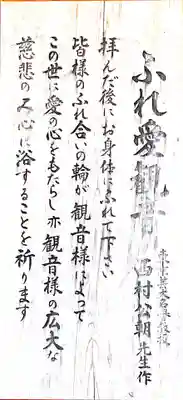 ふれ愛観音
西村公朝先生作
拝んだ後にお身体にふれて下さい
皆様のふれ合いの輪が観音様によって
この世に愛の心をもたらし亦観音様の広大な
慈悲の又心に浴することを祈ります